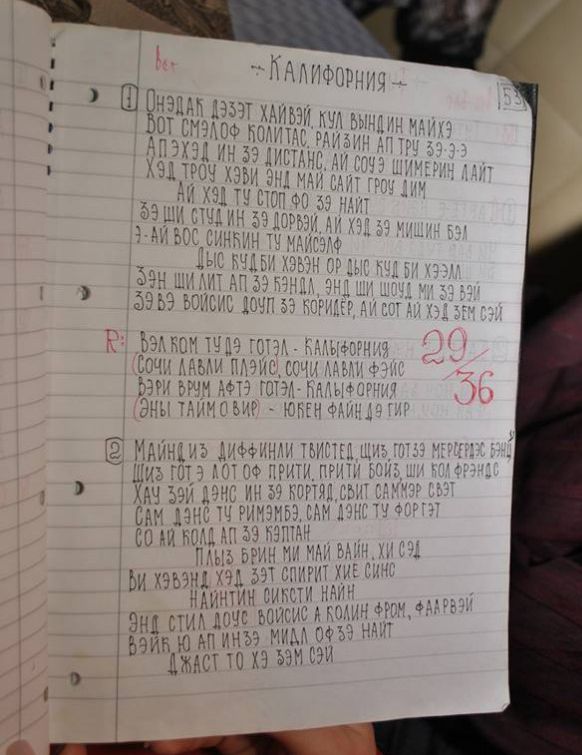 - КАЛИФОРНИЯ -
53
1 ОНЭДАК ДЭЗЭТ ХАЙВЭЙ, КУЛ ВЫНДИН МАЙХЭ
ВОТ СМЭЛОФ КОЛИТАС, РАЙЗИН АП ТРУ ЗЭ-Э-Э
АПЭХЭД ИН ЗЭ ДИСТАНС, АЙ СОУЭ ШИМЕРИН ЛАЙТ
ХЭД ТРОУ ХЭВИ ЭНД МАЙ САЙТ ГРОУ ДИМ
АЙ ХЭД ТУ СТОП ФО ЗЭ НАЙТ
ЗЭ ШИ СТУД ИН ЗЭ ДОРВЭЙ, АЙ ХЭД ЗЭ МИШИН БЭЛ
Э-АЙ ВОС СИНКИН ТУ МАЙСЭЛФ
ДЫС КУД БИ ХЭВЭН ОР ДЫС КУД БИ ХЭЭЛЛ
ЗЭН ШИ ЛИТ АП ЗЭ КЭНДЛ, ЭНД ШИ ШОУД МИ ЗЭ ВЭЙ
ЗЭ ВЭ ВОЙСИС ДОУП ЗЭ КОРИДЕР, АЙ СОТ АЙ ХЭД ЗЕМ СЭЙ
R: ВЭЛКОМ ТУ ДЭ ГОТЭЛ - КАЛЫФОРНИЯ
(СОЧИ ЛАВЛИ ПЛЭЙС), СОЧИ ЛАВЛИ ФЭЙС
ВЭРИ ВРУМ АФТЭ ГОТЭЛ - КАЛЫФОРНИЯ
(ЭНЫ ТАЙМ О ВИР) - ЮКЕН ФАЙН ДЭ ГИР
29/36
2 МАЙНД ИЗ ДИФФИНЛИ ТВИСТЕД, ЩИЗ ГОТ ЗЭ МЕРСЕРДЭС БЭНЦ
ЩИЗ ГОТ Э ЛОТ ОФ ПРИТИ, ПРИТИ БОЙЗ, ШИ КОЛ ФРЭНДС
ХАУ ЗЭЙ ДЭНС ИН ЗЭ КОРТЯД, СВИТ САММЭР СВЭТ
САМ ДЭНС ТУ РИМЭМБЭ, САМ ДЭНС ТУ ФОРГЭТ
СО АЙ КОЛД АП ЗЭ КЭПТАН
ПЛЫЗ БРИН МИ МАЙ ВАЙН, ХИ СЭД
ВИ ХЭВЭНД ХЭД ЗЭТ СПИРИТ ХИЕ СИНС
НАЙНТИН СИКСТИ НАЙН
ЭНД СТИЛ ДОУС ВОЙСИС А КОЛИН ФРОМ, ФААРВЭЙ
ВЭЙК Ю АП ИН ЗЭ МИДЛ ОФ ЗЭ НАЙТ
ДЖАСТ ТО ХЭ ЗЭМ СЭЙ